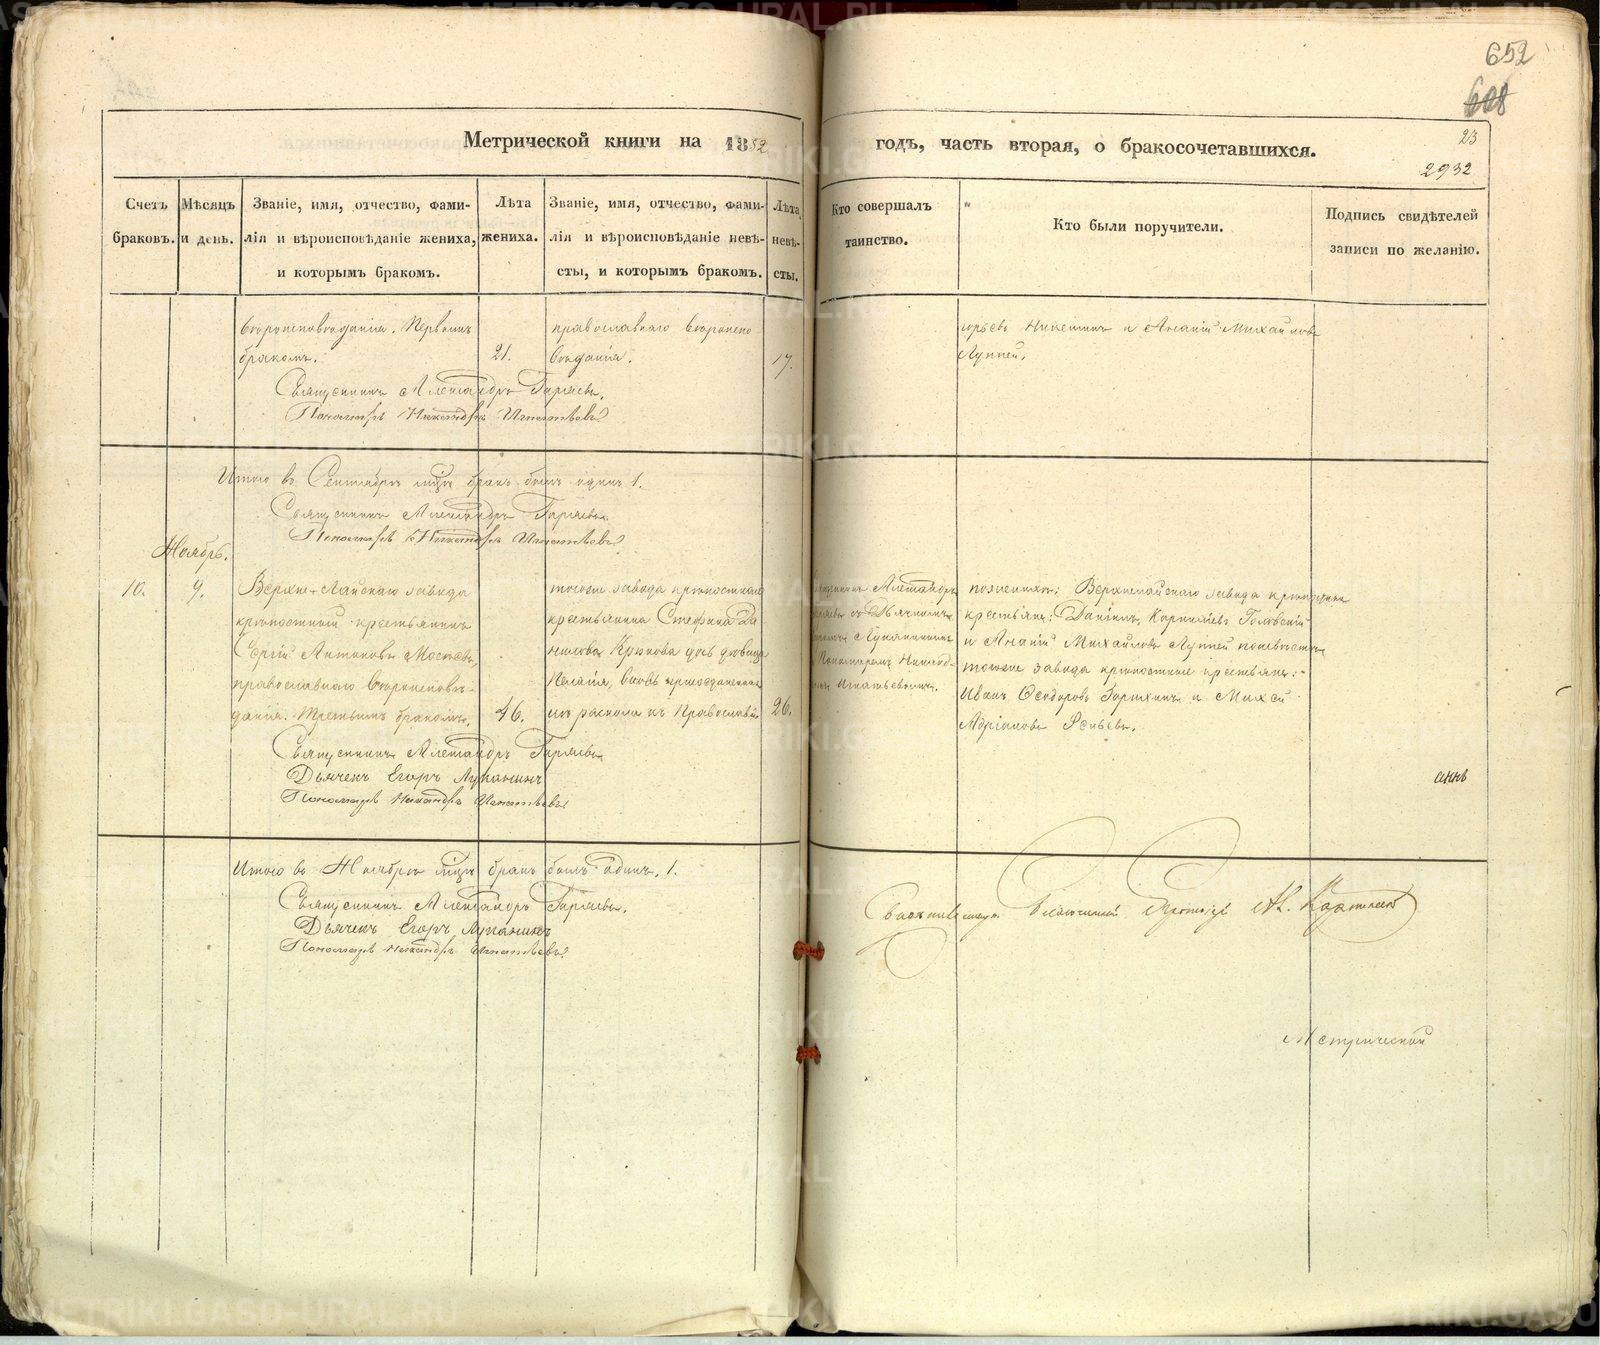 652
608
23
2932
Метрической книги на 1852 годъ, часть вторая, о бракосочетавшихся.
Счетъ браковъ.
Мѣсяцъ и день.
Званіе, имя, отчество, фами-
лія и вѣроисповѣданіе жениха,
и которымъ бракомъ.
Лѣта
жениха.
Званіе, имя, отчество, фами-
лія и вѣроисповѣданіе невѣ-
сты, и которымъ бракомъ.
Лѣта
невѣ-
сты.
Кто совершалъ
таинство.
Кто были поручители.
Подпись свидѣтелей
записи по желанію.
вѣроисповѣданія. Первымъ
бракомъ.
21.
православнаго вѣроиспо
вѣданія.
17.
Никитинъ и Ананій Михайловъ
Луппей.
Священникъ Александръ Гаряевъ.
Пономарь Никандръ Игнатьевъ
Итого въ Сентябрѣ мцѣ бракъ былъ одинъ 1.
Священникъ Александръ Гаряевъ.
Пономарь Никандръ Игнатьевъ
Ноябрь.
10.
9.
Верхне-Лайскаго завода
крѣпостный крестьянинъ
Сергій Антоновъ
православнаго вѣроисповѣ-
данія. Третьимъ бракомъ.
46.
тогоже завода крѣпостнаго
крестьянина Стефана Да
нилова Крюкова дочь дѣвица
Пелагія, вновь присоединенная
изъ раскола къ Православію
26.
Священникъ Александръ
Гаряевъ съ Дьячкомъ
Лупанинымъ
и Пономаремъ Никанд-
ромъ Игнатьевымъ.
по женихѣ: Верхнелайскаго завода крѣпостные
крестьяне: Даніилъ Корниліевъ
и Ананій Михайловъ Луппей по невѣстѣ
тогоже завода крѣпостные крестьяне:
Иванъ Ѳеодоровъ и
Адріановъ
Священникъ Александръ Гаряевъ
Дьячекъ Егоръ Лупанинъ
Пономарь Никандръ Игнатьевъ
Итого въ Ноябрѣ мцѣ бракъ былъ одинъ. 1.
Священникъ Александръ Гаряевъ.
Дьячекъ Егоръ Лупанинъ
Пономарь Никандръ Игнатьевъ
Благочинный
Метрической
METRIKI.GASO-URAL.RU